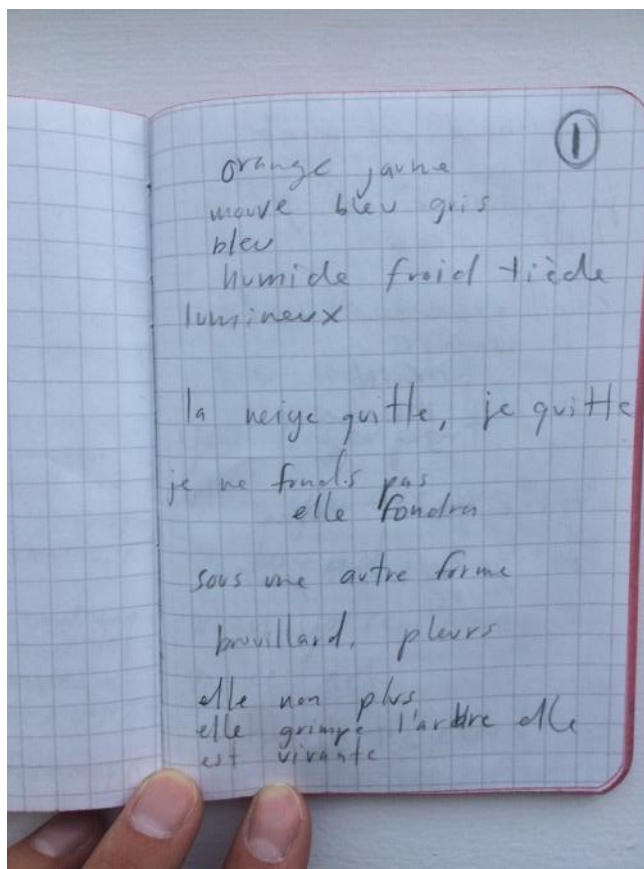 1
orange jaune
mauve bleu gris
bleu
humide froid tiède
lumineux
la neige quitte, je quitte
je ne fonds pas
elle fondra
sous une autre forme
brouillard, pleurs
elle non plus
elle grimpe l'arbre elle
est vivante